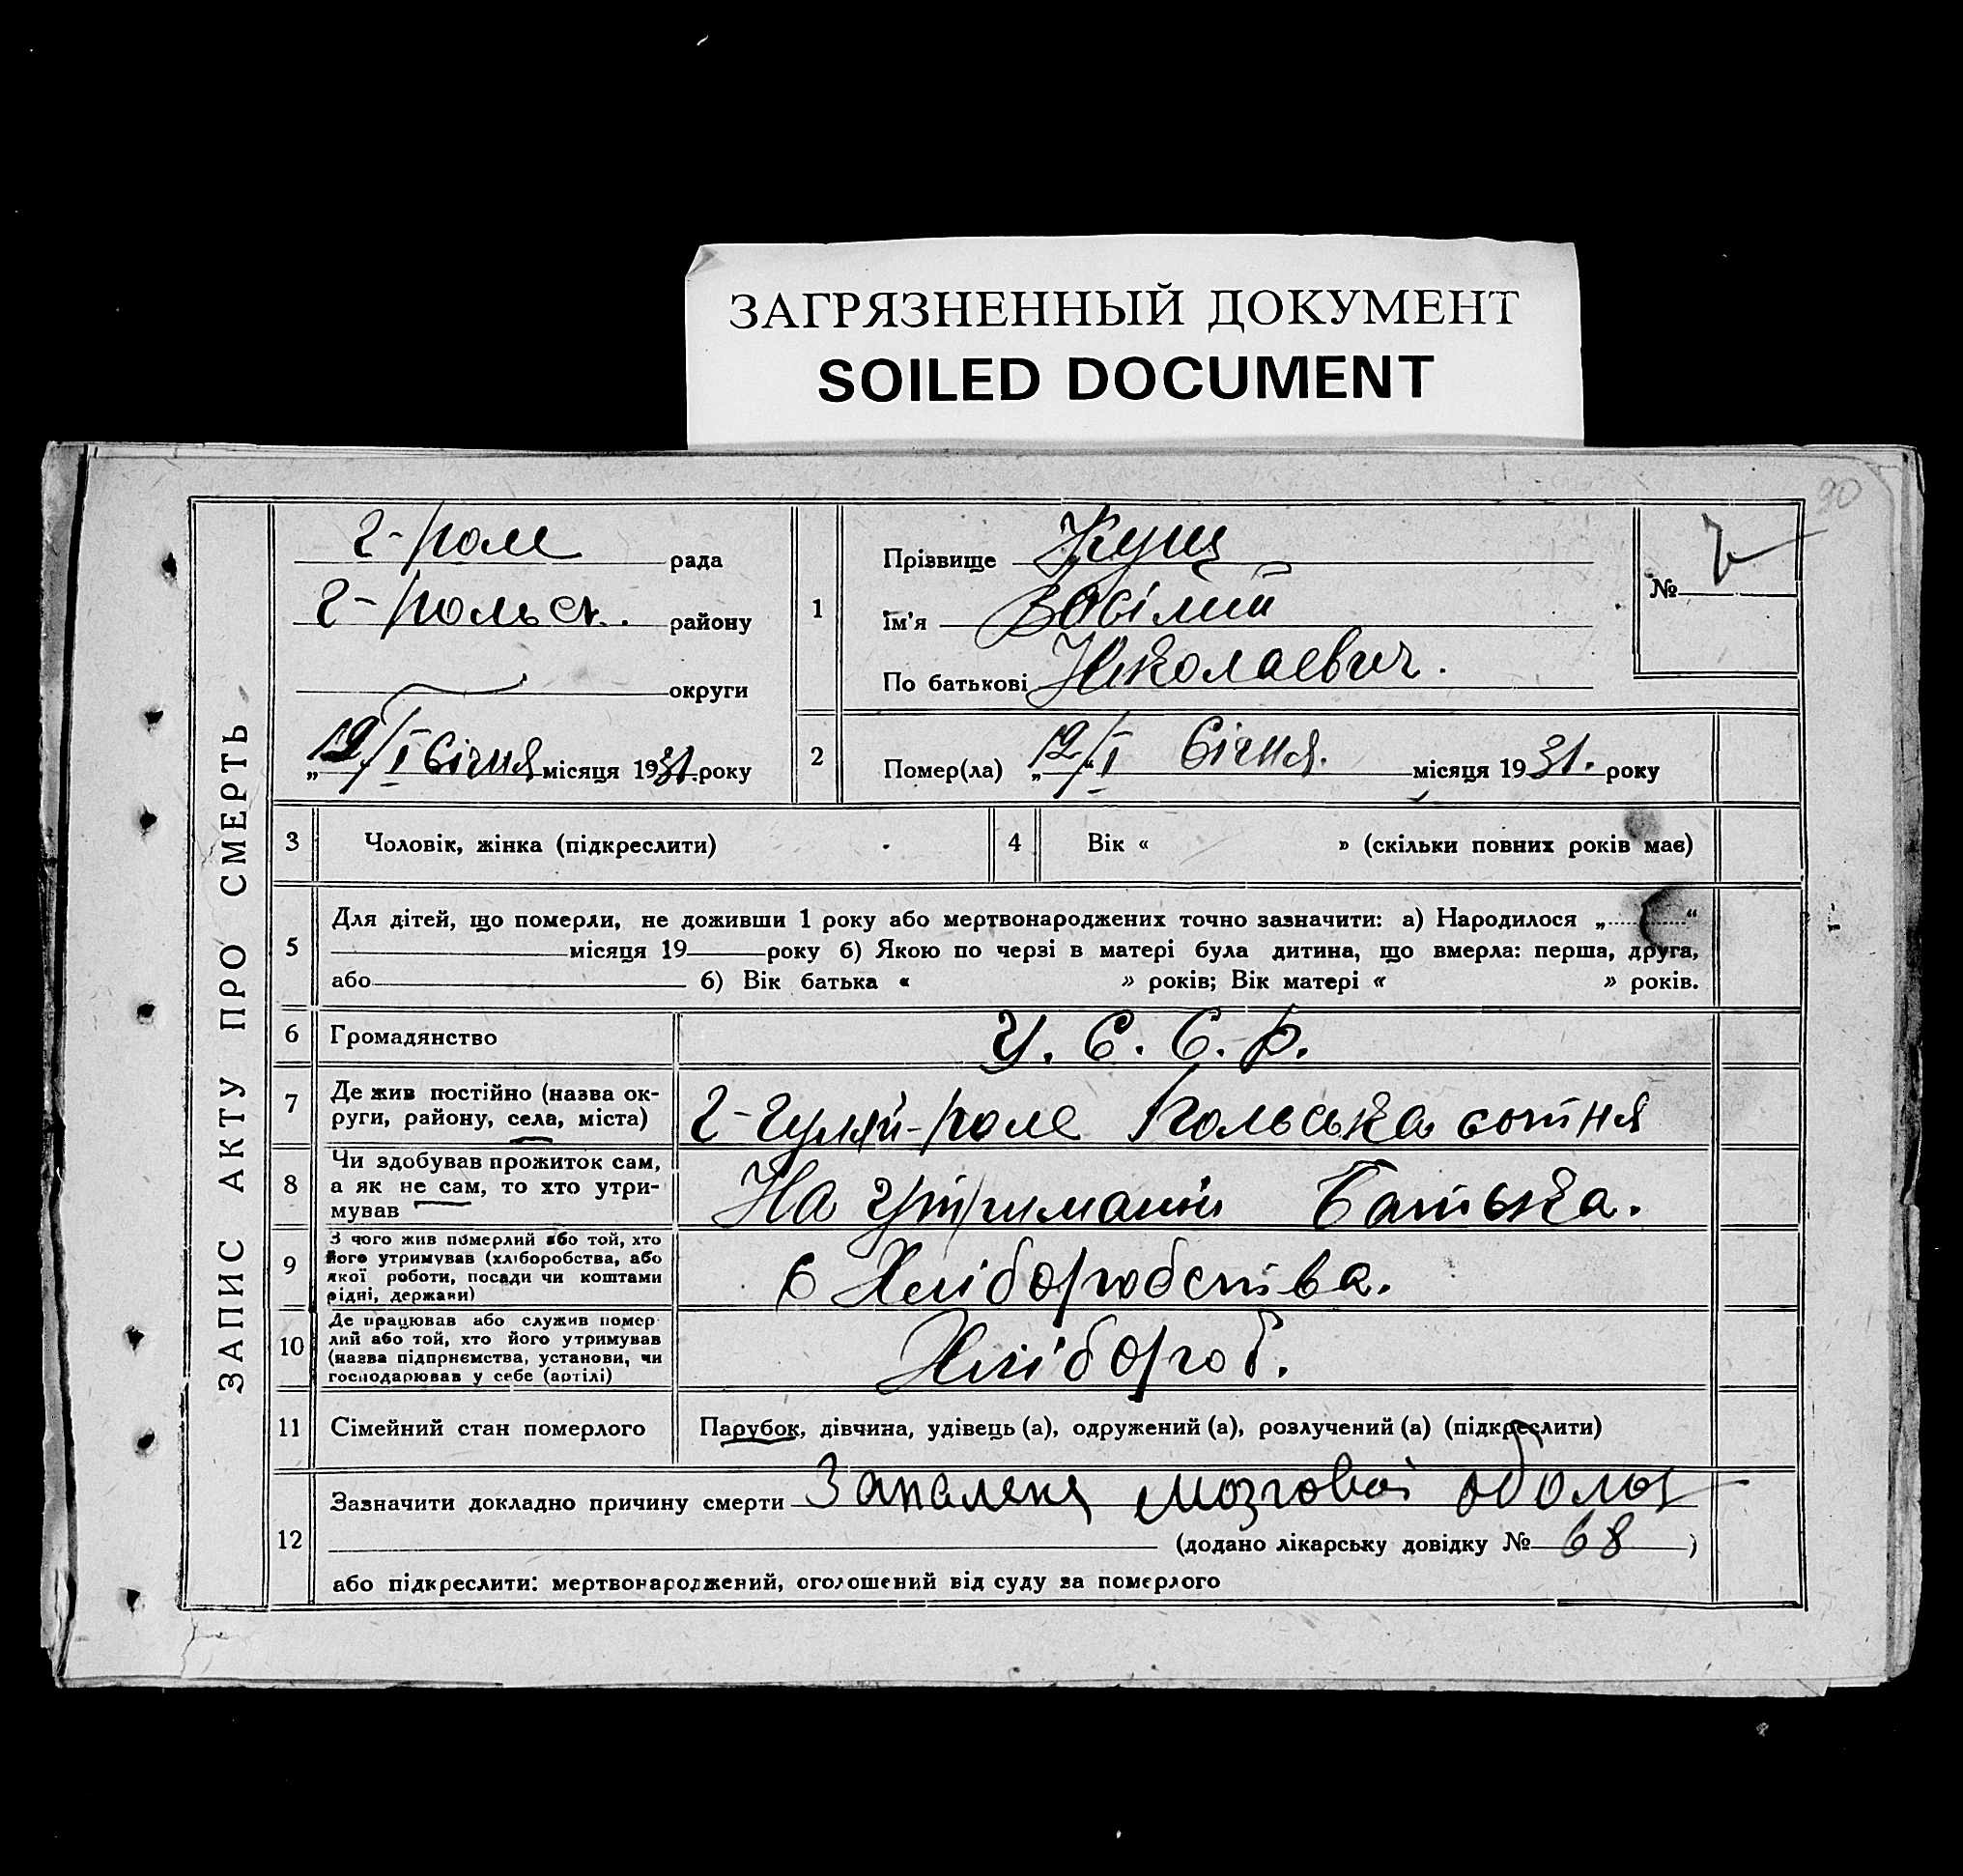 ЗАГРЯЗНЕННЫЙ ДОКУМЕНТ
SOILED DOCUMENT
90
ЗАПИС АКТУ ПРО СМЕРТЬ
Г-Поле рада
Г-Польск. району
округи
„12/I Січня місяця 1931. року
1
Прізвище Кущ
Ім'я Васілий
По батькові Николаевич.
№ 7
2
Помер(ла) „12/I Січня. місяця 1931. року
3 Чоловік, жінка (підкреслити)
4 Вік « » (скільки повних років має)
5
Для дітей, що померли, не доживши 1 року або мертвонароджених точно зазначити: а) Народилося „ “
місяця 19 року б) Якою по черзі в матері була дитина, що вмерла: перша, друга,
або б) Вік батька « » років; Вік матері « » років.
6 Громадянство У. С. С. Р.
7
Де жив постійно (назва ок-
руги, району, села, міста)
Г-Гуляй-Поле Польська сотня
8
Чи здобував прожиток сам,
а як не сам, то хто утри-
мував
На утриманні Батька.
9
З чого жив померлий або той, хто
його утримував (хліборобства, або
якої роботи, посади чи коштами
рідні, держави)
С Хліборобства.
10
Де працював або служив помер-
лий або той, хто його утримував
(назва підприємства, установи, чи
господарював у себе (артілі)
Хлібороб.
11 Сімейний стан померлого Парубок, дівчина, удівець (а), одружений (а), розлучений (а) (підкреслити)
12
Зазначити докладно причину смерти Запалення мозговой
(додано лікарську довідку № 68 )
або підкреслити: мертвонароджений, оголошений від суду за померлого